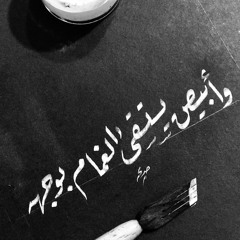 وأبيض يستقى الغمام بوجهه